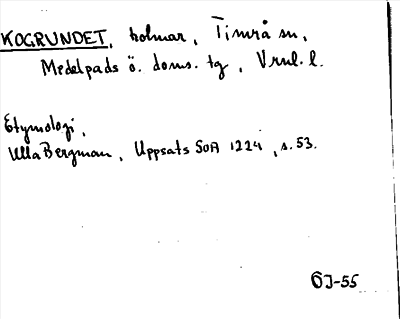 KOGRUNDET, holmar, Timrå sn,
Medelpads ö. doms. tg, Vrnl. l.
Etymologi,
Ulla Bergman, Uppsats SOA 1224, s. 53.
OJ-55